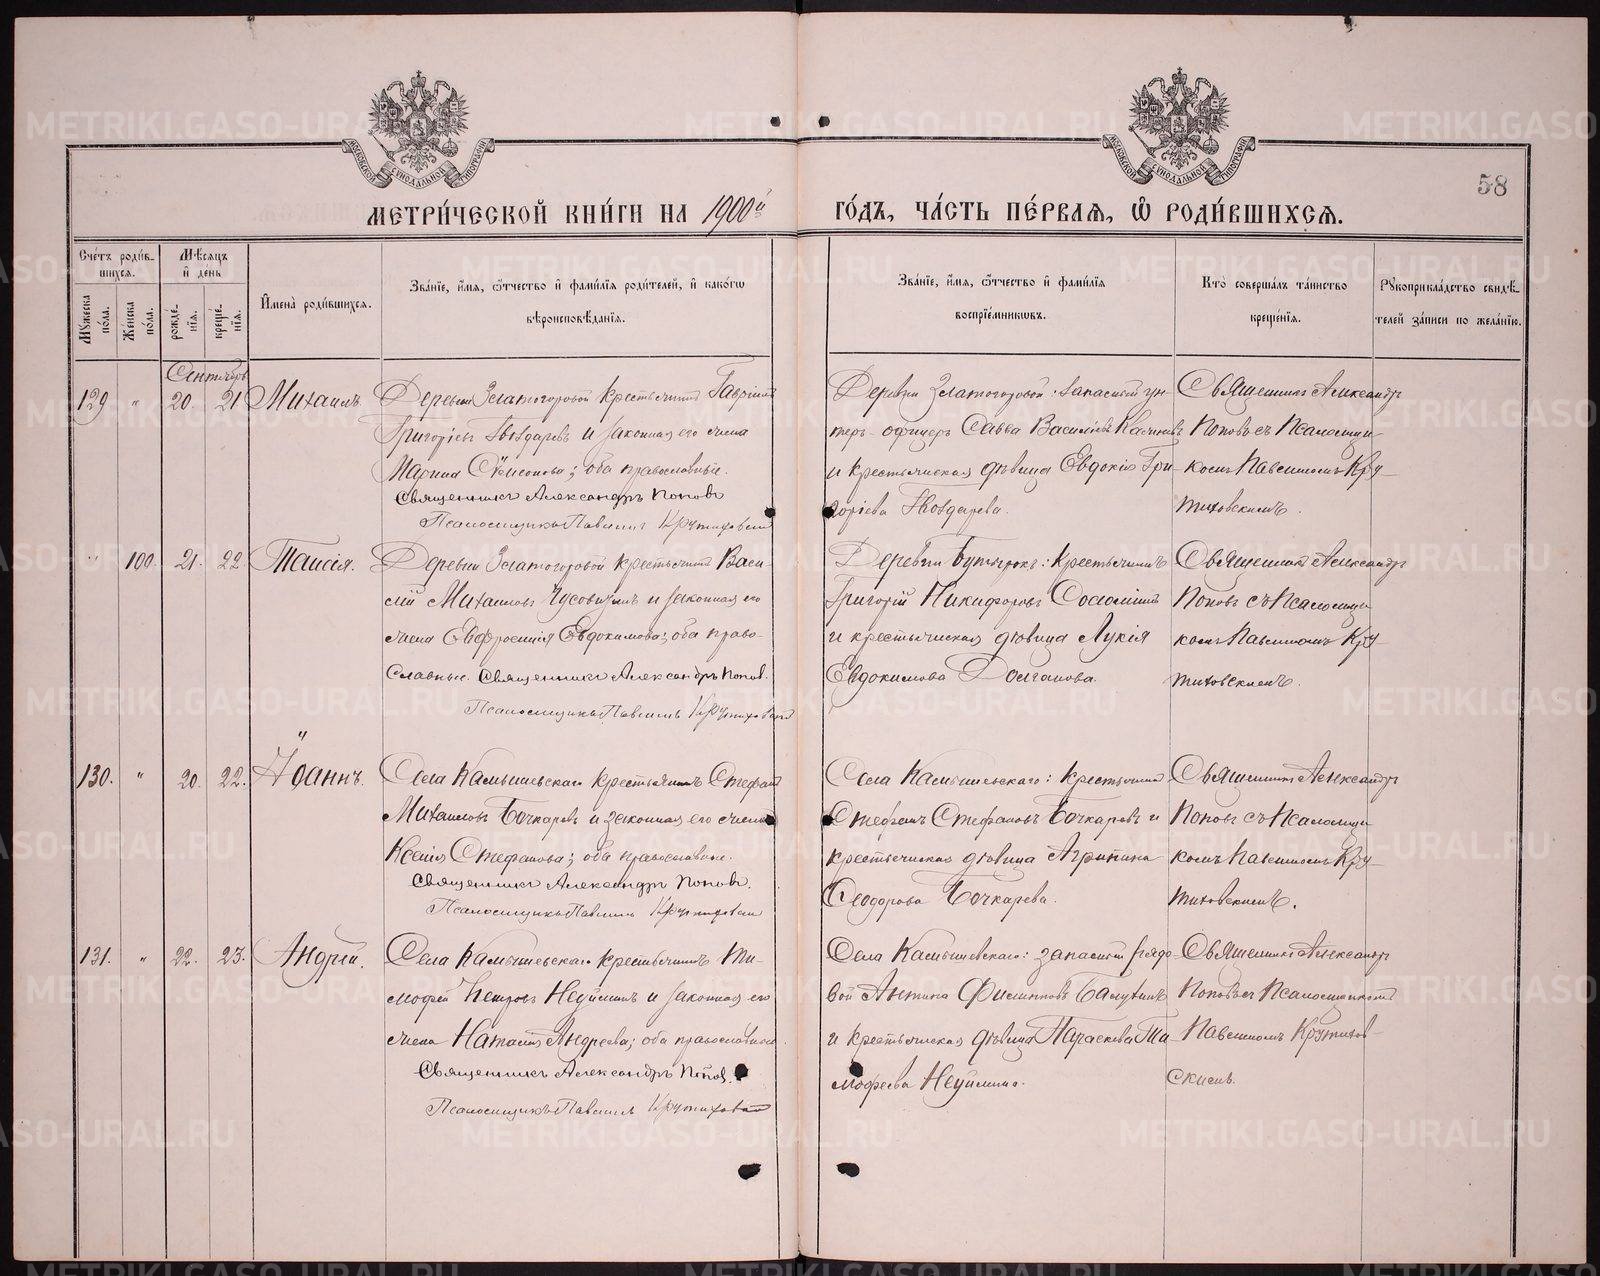 58
МЕТРИ́ЧЕСКОЙ КНИ́ГИ НА 1900й ГО́ДЪ, ЧА́СТЬ ПЕ́РВАѦ, Ѡ҆ РОДИ́ВШИХСѦ.
Сче́тъ роди́вшихся.
Мѣ́сяцъ и҆ де́нь
Мꙋ́жеска по́ла.
Же́нска по́ла.
рожде́нїя.
креще́нїя.
И҆мена̀ роди́вшихся.
Зва́нїе, и҆́мя, ѻ҆́тчество и҆ фами́лїя роди́телей, и҆ како́гѡ
вѣроисповѣ́данїя.
Зва́нїе, и҆́мя, ѻ҆́тчество и҆ фами́лїя
воспрїе́мникѡвъ.
Кто̀ соверша́лъ та́инство
креще́нїя.
Рꙋкоприкла́дство свидѣ́-
телей за́писи по жела́нїю.
Сентябрь
129 " 20. 21 Михаилъ.
Деревни Златогоровой крестьянинъ Гавріилъ
Григорьевъ Гвоздаревъ и законная его жена
Марина Симеонова; оба православные.
Священникъ Александръ Поповъ
Псаломщикъ Павлинъ Крутиховскій
Деревни Златогоровой: запасный ун-
теръ-офицеръ Савва Васильевъ
и крестьянская дѣвица Евдокія Гри-
горіева Гвоздарева.
Священникъ Александръ
Поповъ съ Псаломщи-
комъ Павлиномъ Кру-
тиховскимъ.
" 100. 21. 22. Таисія.
Деревни Златогоровой крестьянинъ Васи-
лій Михаиловъ Чусовитинъ и законная его
жена Евфросинія Евдокимова; оба право-
славные. Священникъ Александръ Поповъ.
Псаломщикъ Павлинъ Крутиховскій
Деревни Бутырокъ: крестьянинъ
Григорій Никифоровъ Соломеинъ
и крестьянская дѣвица Лукія
Евдокимова Долганова.
Священникъ Александръ
Поповъ съ Псаломщи-
комъ Павлиномъ Кру-
тиховскимъ.
130. " 20. 22. Іоаннъ.
Села Камышевскаго крестьянинъ Стефанъ
Михаиловъ Бочкаревъ и законная его жена
Ксенія Стефанова; оба православные.
Священникъ Александръ Поповъ.
Псаломщикъ Павлинъ Крутиховскій
Села Камышевскаго: крестьянинъ
Стефанъ Стефановъ Бочкаревъ и
крестьянская дѣвица Агрипина
Ѳеодорова Бочкарева.
Священникъ Александръ
Поповъ съ Псаломщи-
комъ Павлиномъ Кру-
тиховскимъ.
131. " 22. 23. Андрей.
Села Камышевскаго крестьянинъ Ти-
мофей Петровъ Неуйминъ и законная его
жена Наталія Андреева; оба православные.
Священникъ Александръ Поповъ.
Псаломщикъ Павлинъ Крутиховскій
Села Камышевскаго: запасный рядо-
вой Антипа Филипповъ Балутинъ
и крестьянская дѣвица Параскева Ти-
мофеева Неуймина.
Священникъ Александръ
Поповъ съ Псаломщикомъ
Павлиномъ Крутихов-
скимъ.
METRIKI.GASO-URAL.RU